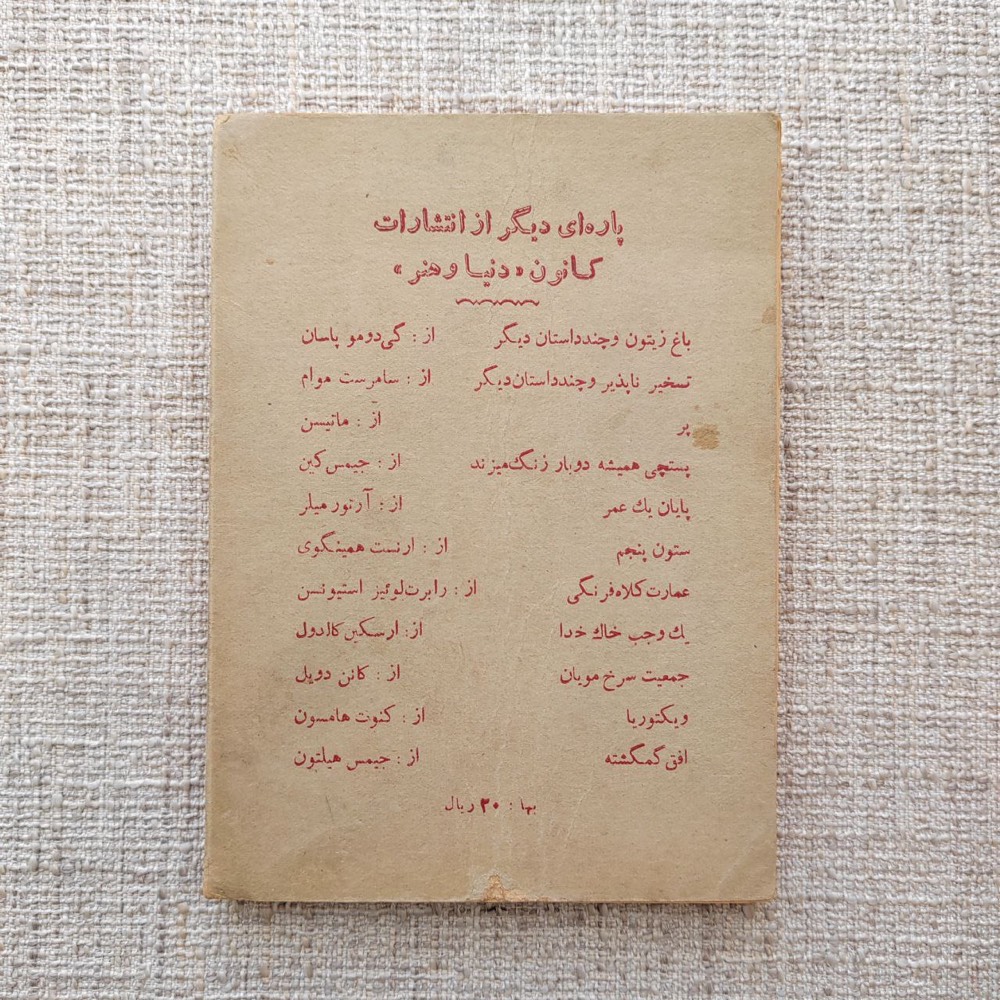 پاره‌ای دیگر از انتشارات
کانون «دنیا و هنر»
باغ زیتون و چند داستان دیگر از : گی دو مو پاسان
تسخیر ناپذیر و چند داستان دیگر از : سامرست موام
پر از : ماتیسن
پستچی همیشه دوبار زنگ میزند از : جیمس کین
پایان یك عمر از : آرتور میلر
ستون پنجم از : ارنست همینگوی
عمارت کلاه فرنگی از : رابرت لوئیز استیونسن
یك وجب خاك خدا از : ارسکین کالدول
جمعیت سرخ مویان از : کانن دویل
ویکتوریا از : کنوت هامسون
افق گمگشته از : جیمس هیلتون
بها : ۳۰ ریال